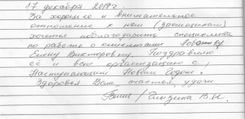 17 декабря 2019 г.
За хорошее и внимательное
отношение к нам (заявителям)
хочется поблагодарить специалиста
по работе с клиентами
Елену Викторовну. Поздравляю
её и всю организацию с
Наступающим Новым Годом!
Здоровья Вам, счастья, удачи